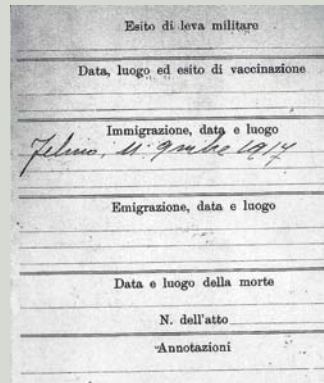 Esito di leva militare
Data, luogo ed esito di vaccinazione
Immigrazione, data e luogo
Felino, 11. 9mbre 1917
Emigrazione, data e luogo
Data e luogo della morte
N. dell'atto
Annotazioni